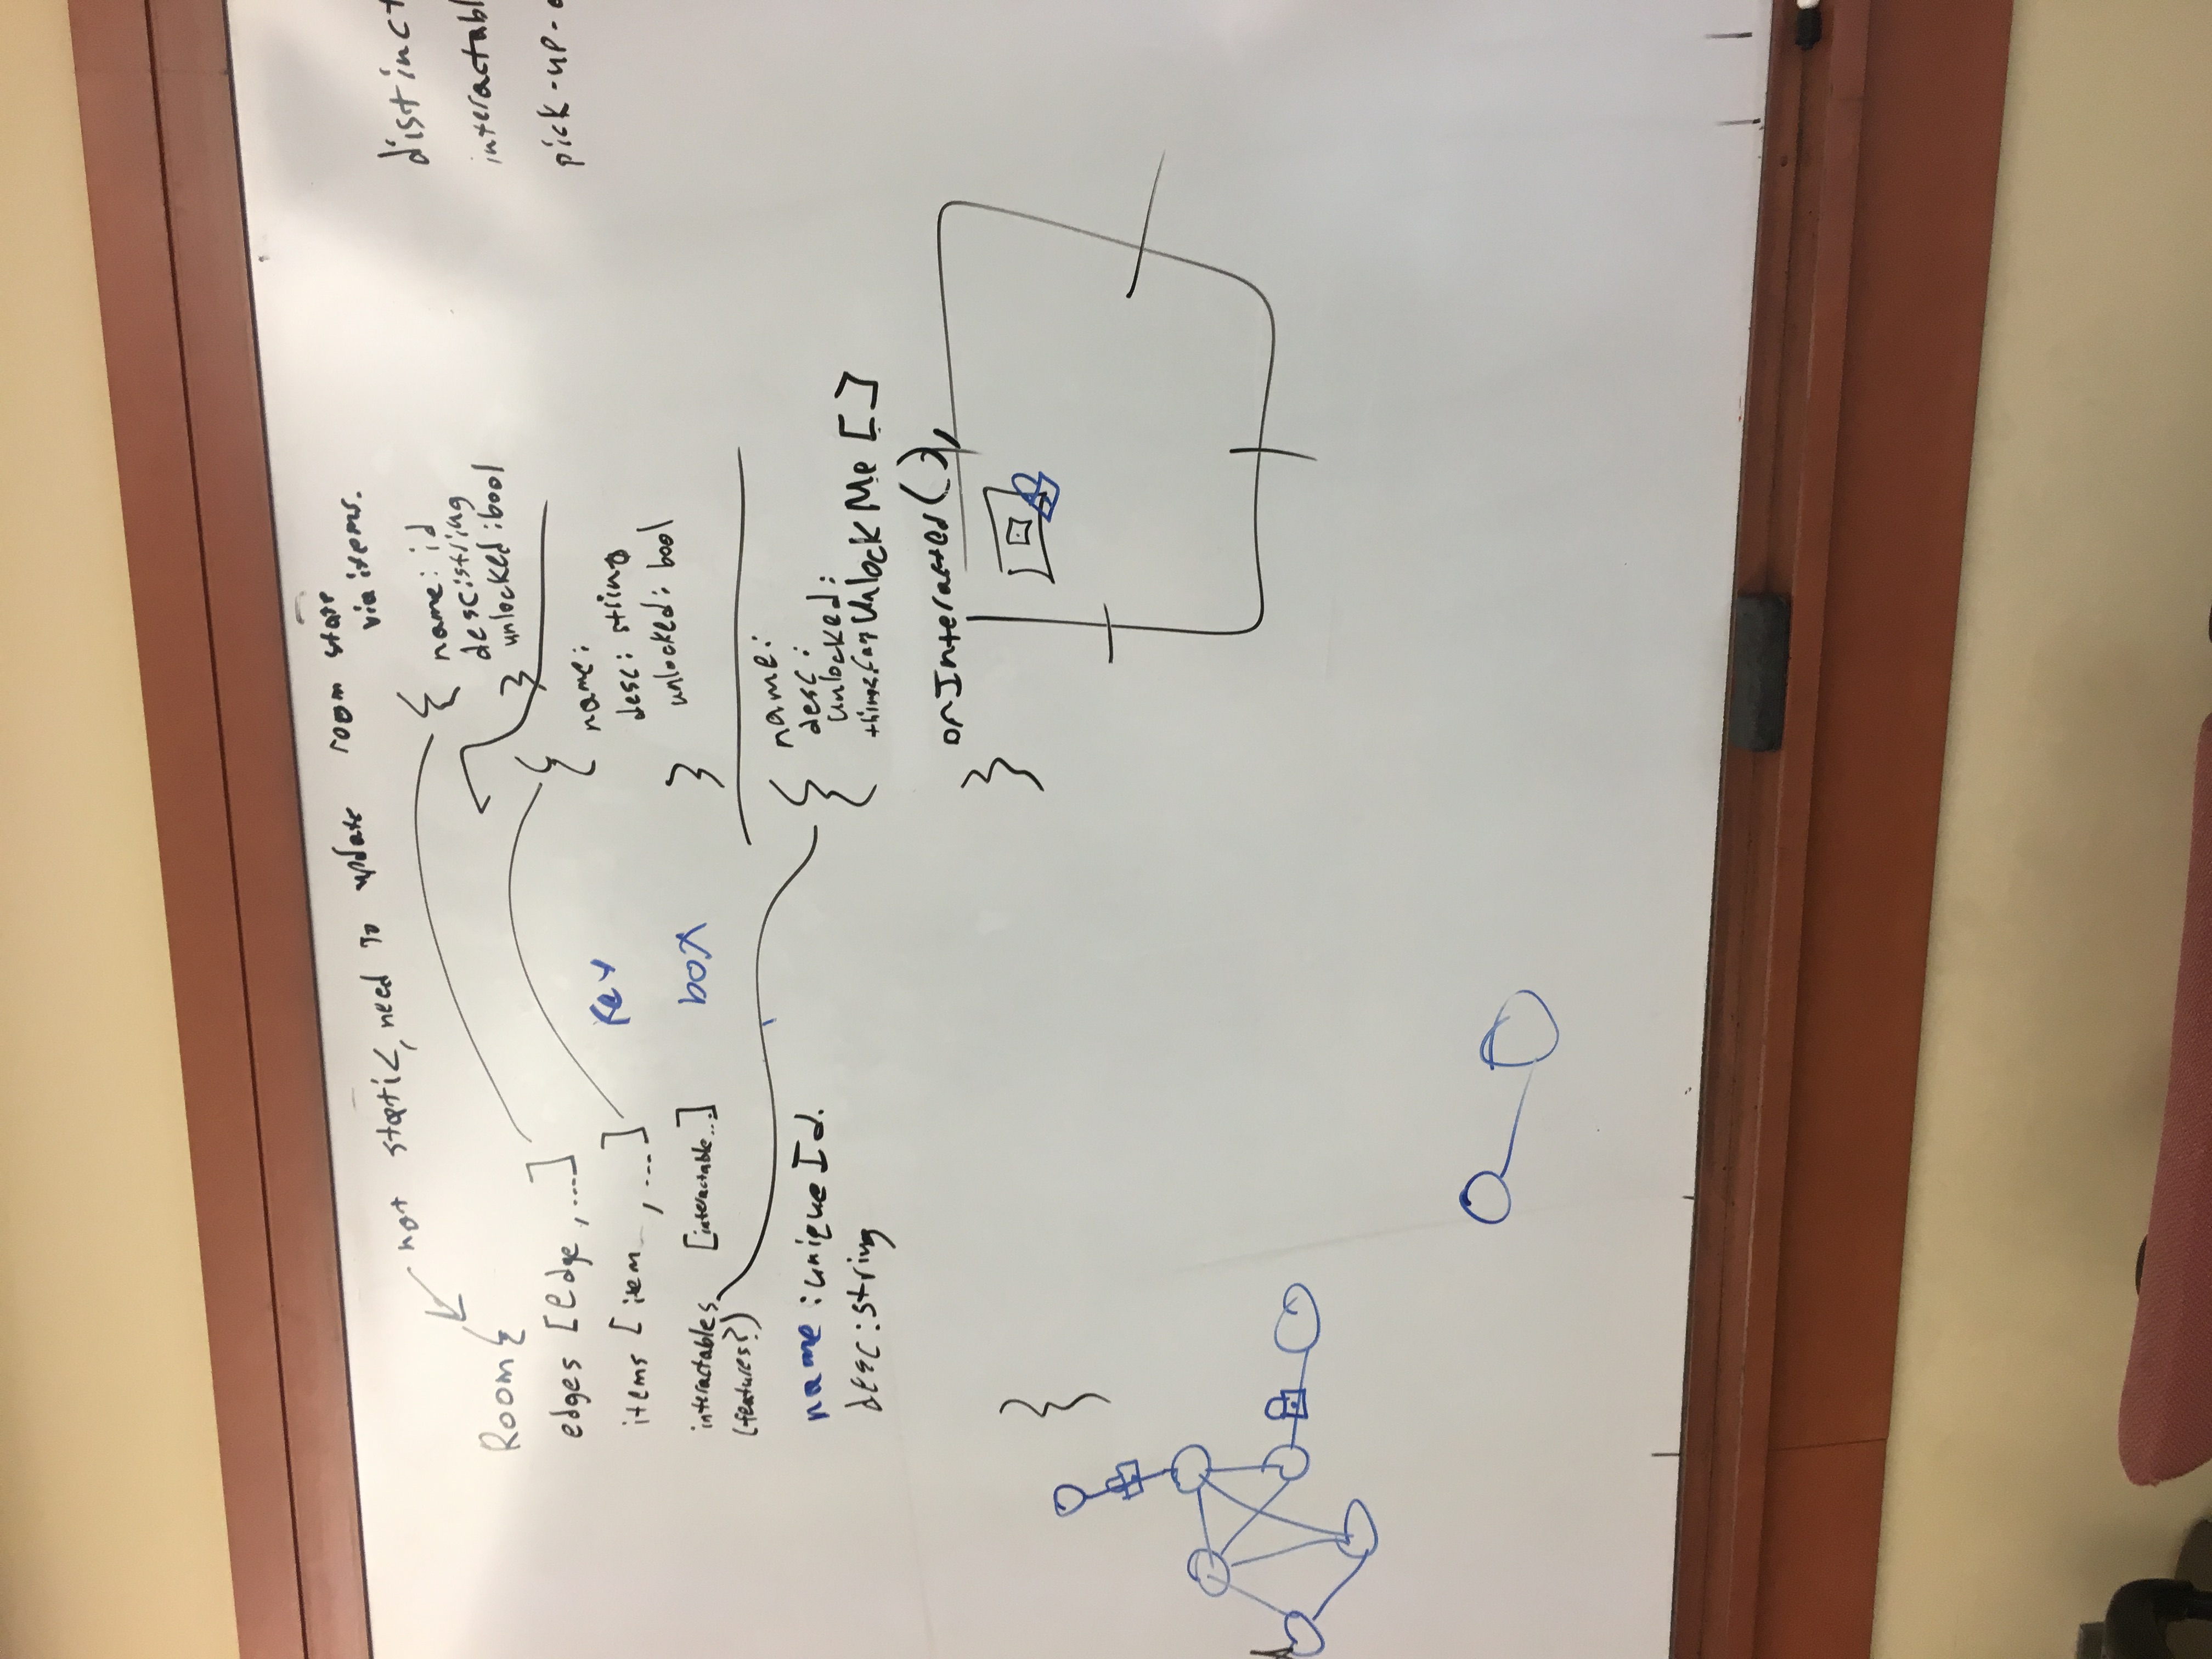 not static, need to update room state
via items.
Room {
edges [Edge, ...]
items [item , ...]
interactables [interactable...]
(features?)
name: uniqueId.
desc: string
}
key
box
{
name: id
desc: string
unlocked: bool
}
{
name:
desc: string
unlocked: bool
}
{
name:
desc:
unlocked:
UnlockMe []
onInteracted(),
}
distinct
interactabl
pick-up-